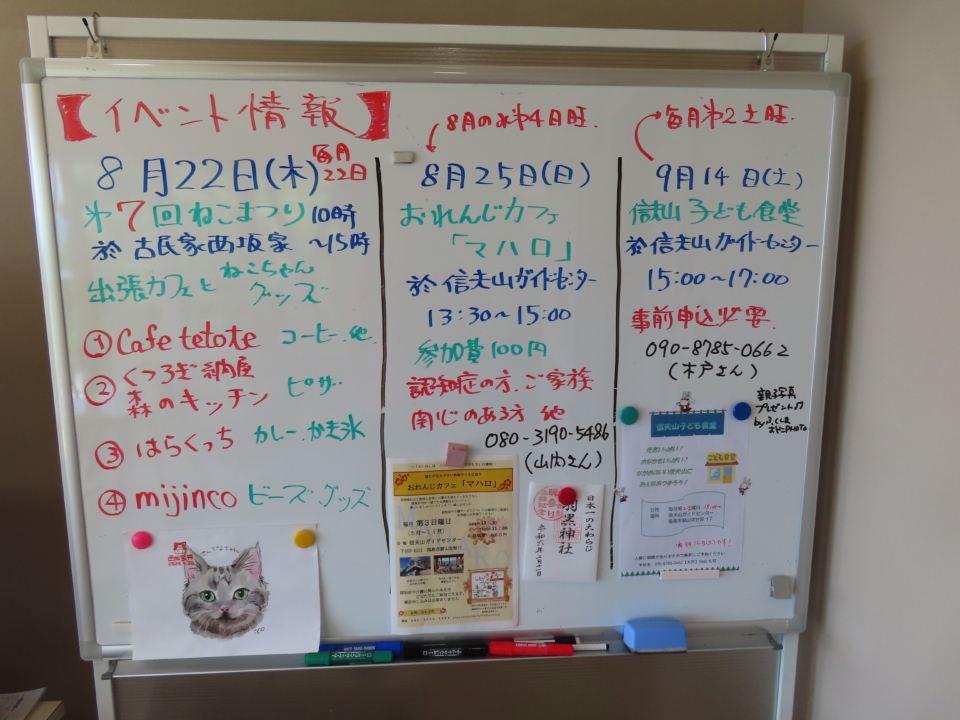 【イベント情報】
8月22日(木)
毎月
22日
第7回ねこまつり 10時
於 古民家西坂家 〜15時
出張カフェと ねこちゃん
グッズ
① Cafe tetote コーヒー.他.
② くつろぎ納屋
森のキッチン ピザ
③ はらくっち カレー.かき氷
④ mijinco ビーズ.グッズ
8月のみ第4日旺.
8月25日(日)
おれんじカフェ
「マハロ」
於 信夫山ガイドセンター
13:30〜15:00
参加費100円
認知症の方、ご家族
関心のある方 他
080-3190-5486
(山内さん)
おれんじカフェ「マハロ」
毎月 第3日曜日
(5月〜11月)
信夫山ガイドセンター
日本一の大わらじ
羽黒神社
毎月第2土旺.
9月14日(土)
信夫山子ども食堂
於 信夫山ガイドセンター
15:00〜17:00
事前申込必要.
090-8785-0662
(木戸さん)
親子写真
プレゼント♫
信夫山子ども食堂
こども食堂